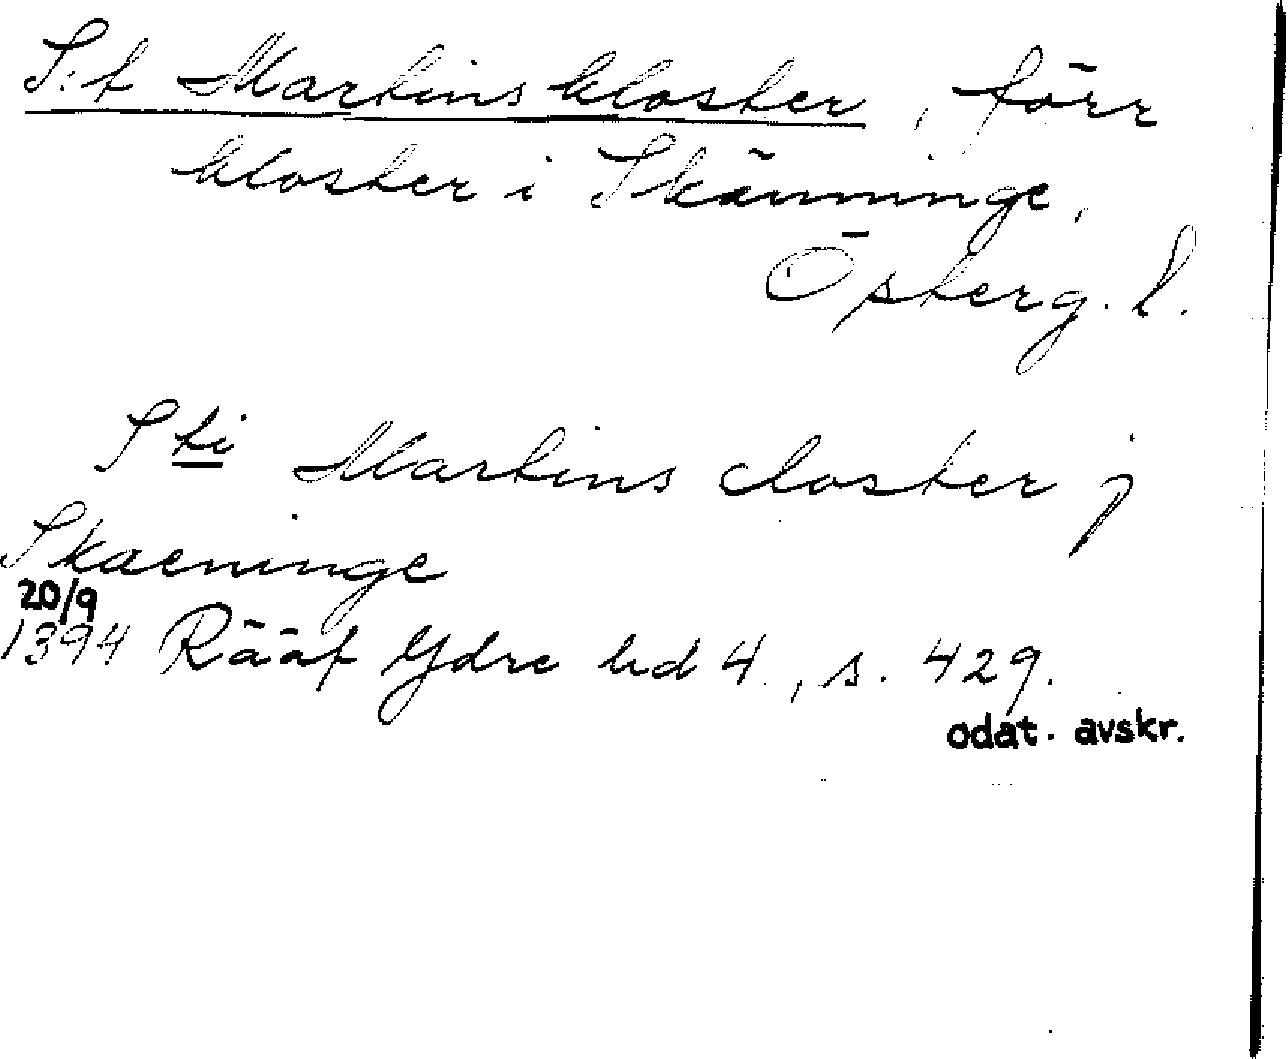 S:t Martins kloster, förr
kloster i Skänninge,
Österg. l.
Sti Martins closter j
Skaeninge
20/9
1394 Rääf Ydre hd 4., s. 429.
odat. avskr.